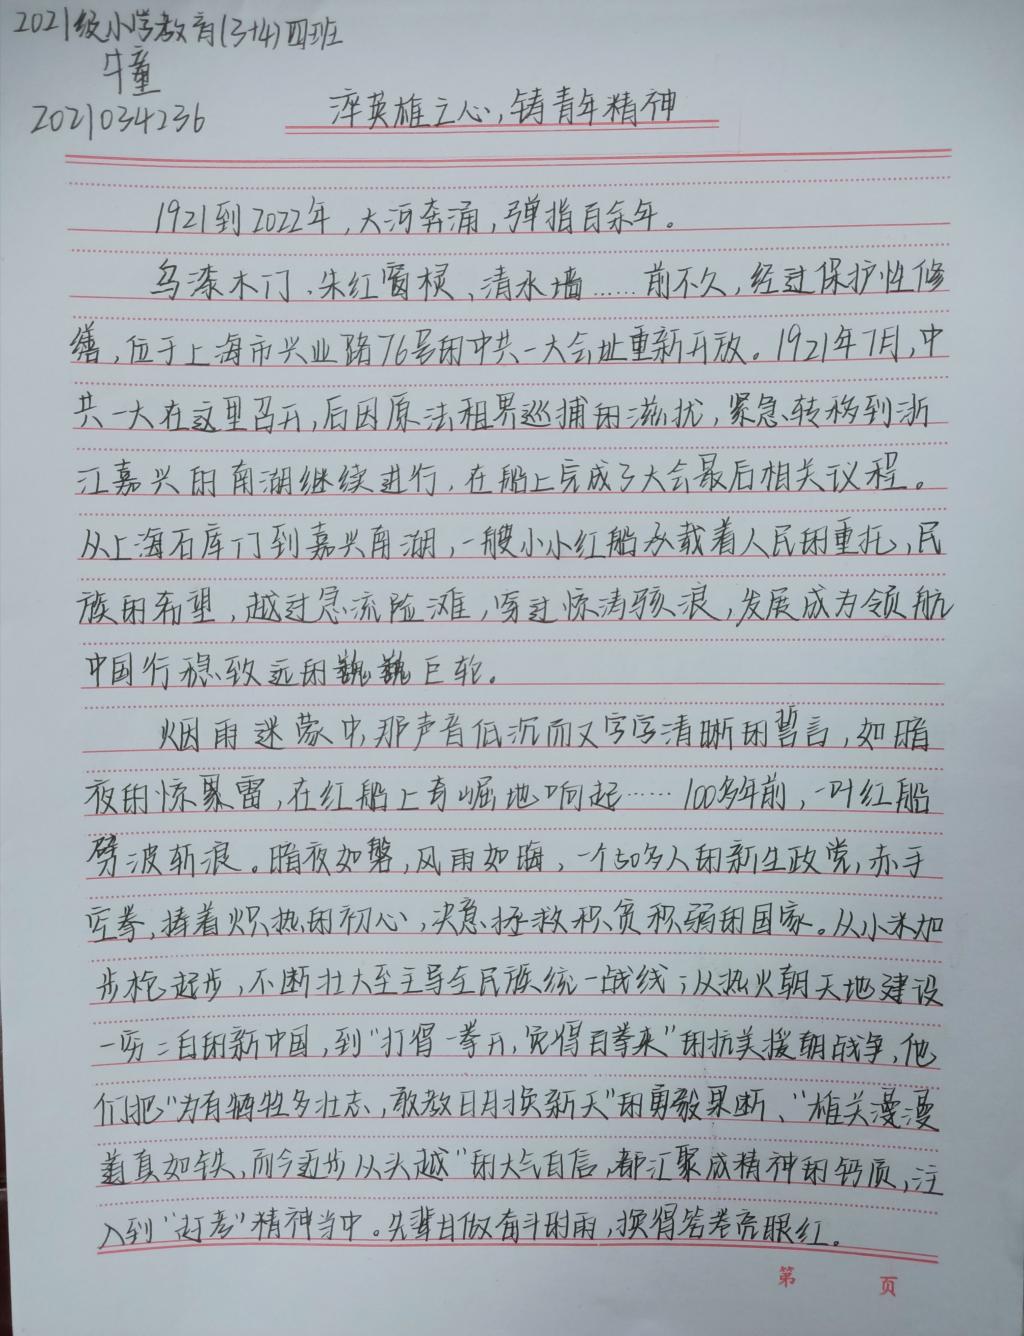 2021级小学教育(3+4)四班
牛童
2021034236
淬英雄之心,铸青年精神
1921到2022年,大河奔涌,弹指百余年。
乌漆木门、朱红窗棂、清水墙……前不久,经过保护性修
缮,位于上海市兴业路76号的中共一大会址重新开放。1921年7月,中
共一大在这里召开,后因原法租界巡捕的滋扰,紧急转移到浙
江嘉兴的南湖继续进行,在船上完成了大会最后相关议程。
从上海石库门到嘉兴南湖,一艘小小红船承载着人民的重托,民
族的希望,越过急流险滩,穿过惊涛骇浪,发展成为领航
中国行稳致远的巍巍巨轮。
烟雨迷蒙中,那声音低沉而又字字清晰的誓言,如暗
夜的惊雷,在红船上奇崛地响起……100多年前,一叶红船
劈波斩浪。暗夜如磐,风雨如晦,一个50多人的新生政党,赤手
空拳,捧着炽热的初心,决意拯救积贫积弱的国家。从小米加
步枪起步,不断壮大至主导全民族统一战线;从热火朝天地建设
一穷二白的新中国,到“打得一拳开,免得百拳来”的抗美援朝战争,他
们把“为有牺牲多壮志,敢教日月换新天”的勇毅果断、“雄关漫漫
道真如铁,而今迈步从头越”的大气自信,都汇聚成精神的钙质,注
入到“赶考”精神当中。先辈甘做奋斗时雨,换得答卷亮眼红。
第 页